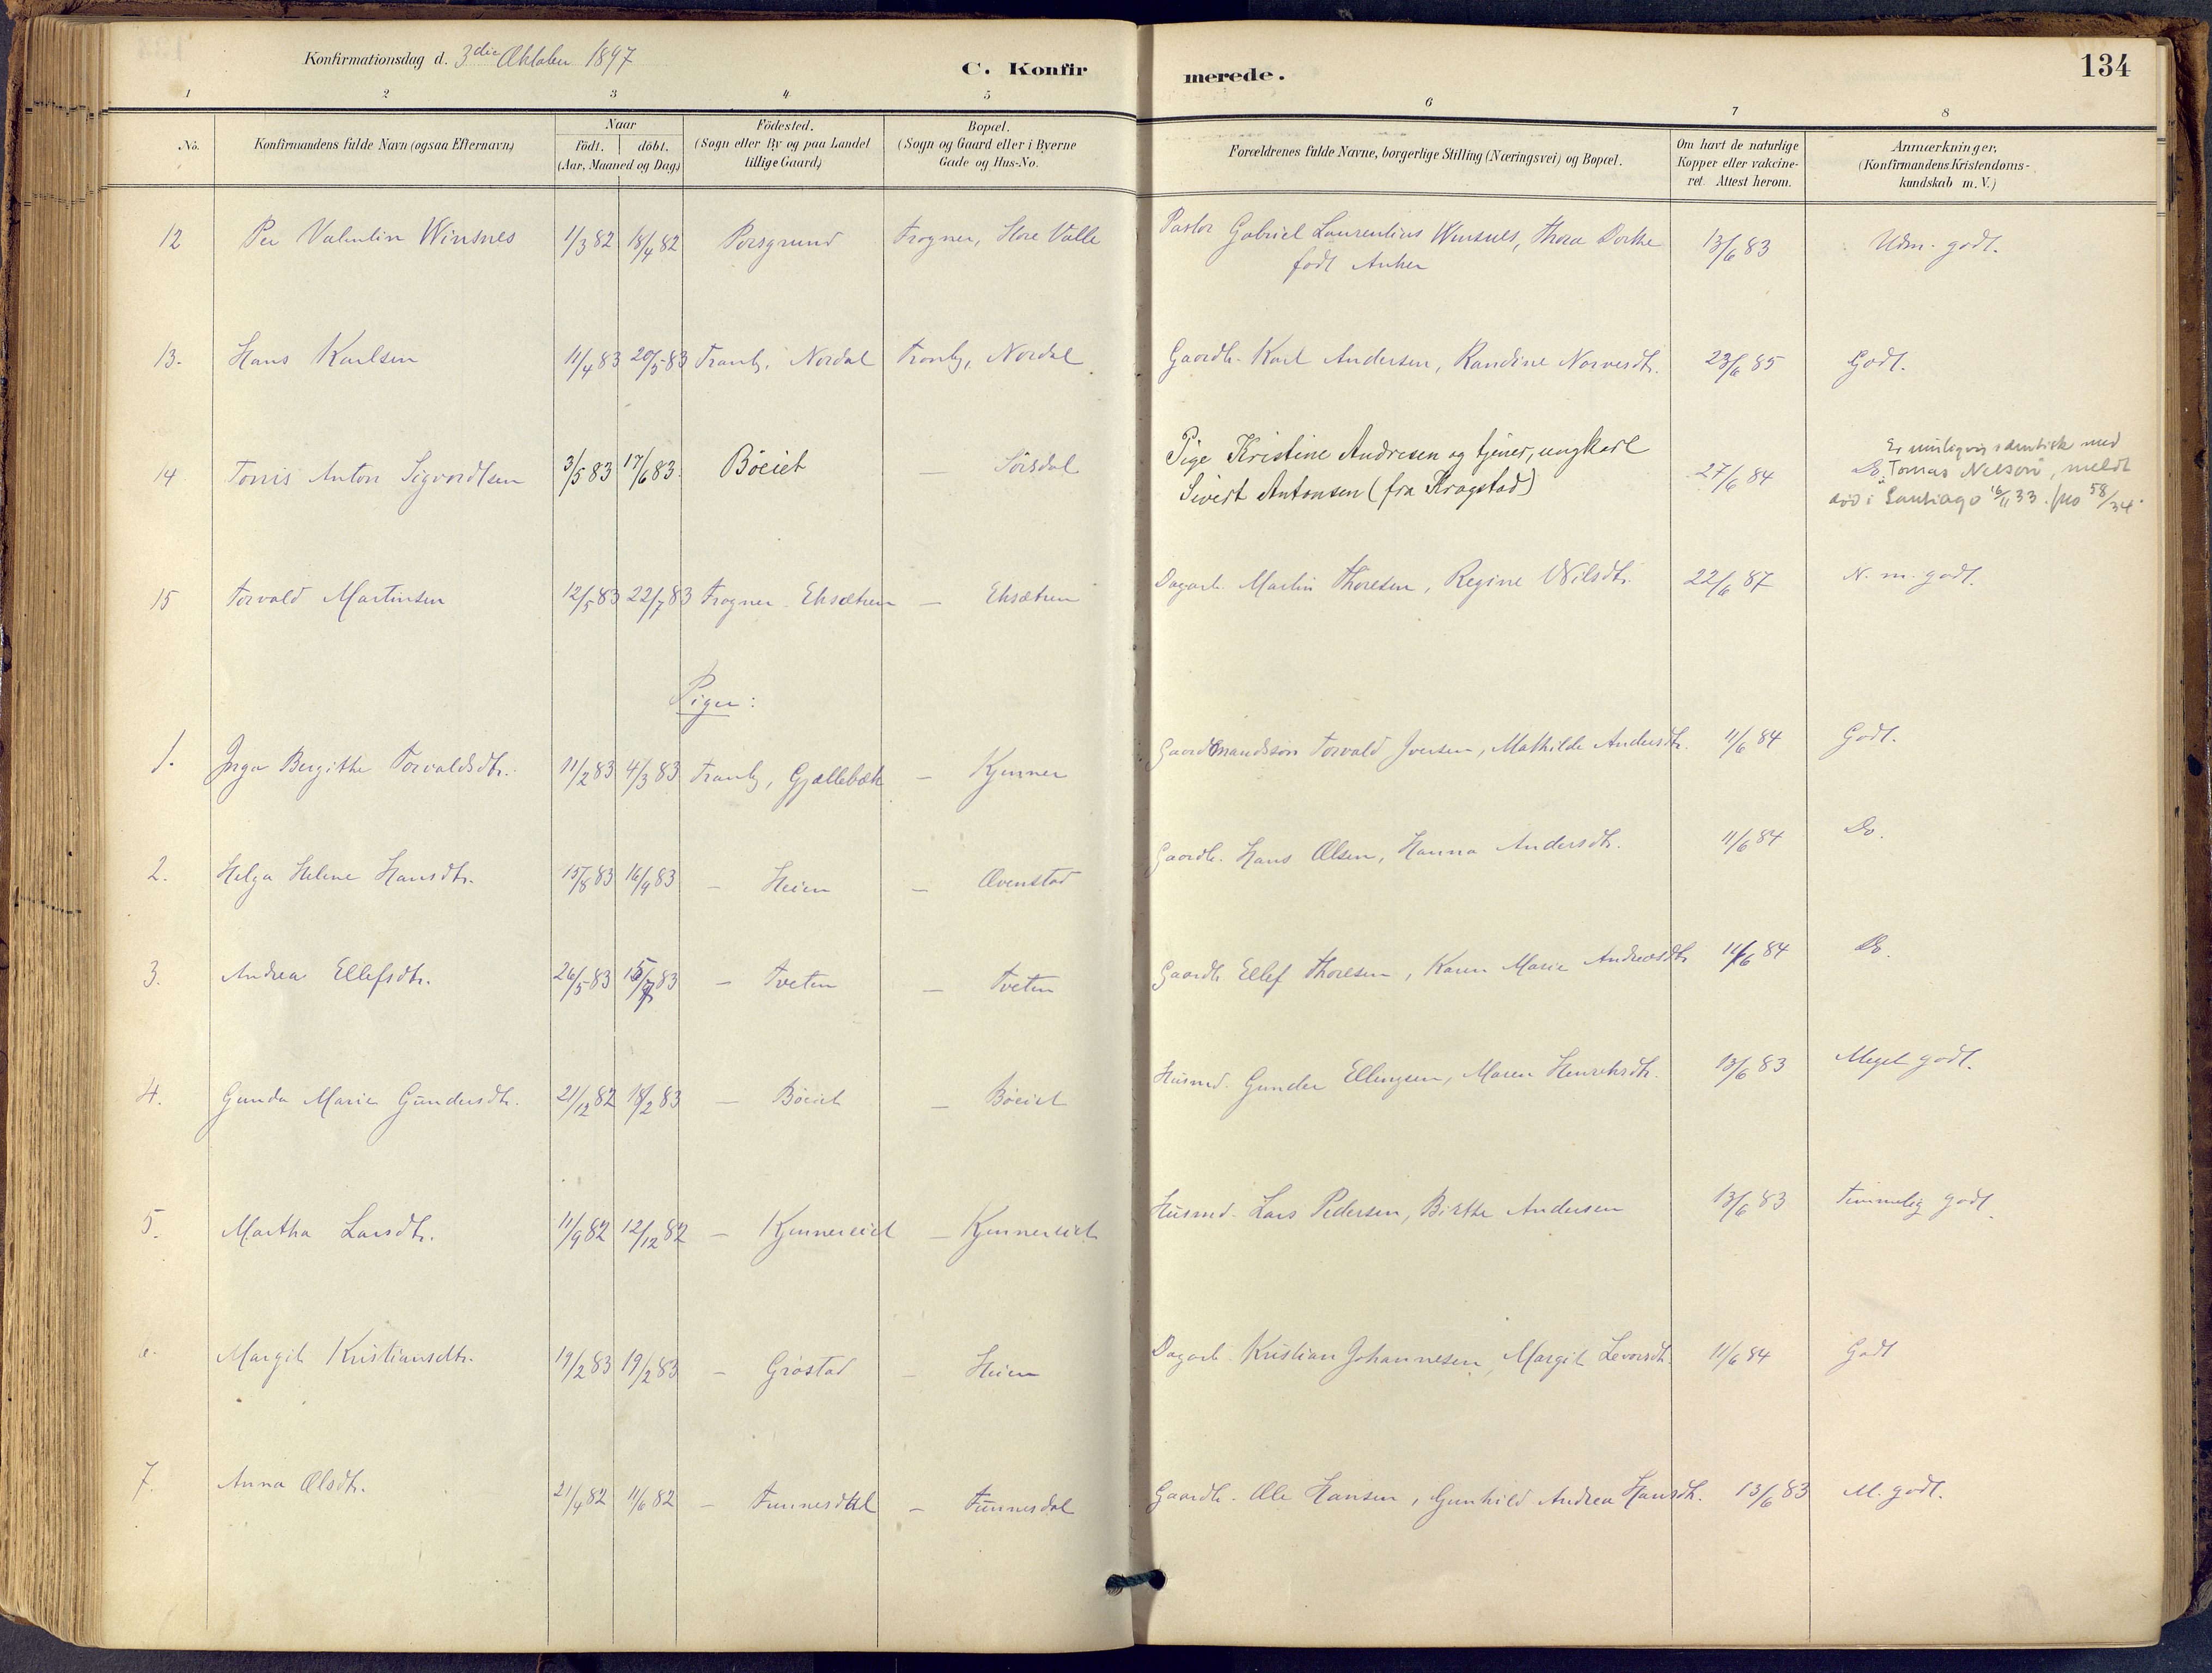 Konfirmationsdag d. 3die Oktober 1897
C. Konfirmerede.
134
1 2 3 4 5 6 7 8
No. Konfirmandens fulde Navn (ogsaa Efternavn) Naar födt. döbt. (Aar, Maaned og Dag) Födested. (Sogn eller By og paa Landet tillige Gaard) Bopæl. (Sogn og Gaard eller i Byerne Gade og Hus-No. Forældrenes fulde Navne, borgerlige Stilling (Næringsvei) og Bopæl. Om havt de naturlige Kopper eller vakcineret. Attest herom. Anmærkninger. (Konfirmandens Kristendomskundskab m. V.)
12 Per Valentin Winsnes 1/3 82 18/4 82 Porsgrund Frogner, Store Valle Pastor Gabriel Laurentius Winsnes, Thora Dorthe 13/6 83 Udm. godt.
födt Anker
13. Hans Karlsen 11/4 83 20/5 83 Tranby, Nordal Tranby, Nordal Gaardb. Karl Andersen, Randine Norvesdtr. 23/6 85 Godt.
14 Tonnis Anton Sigvardtsen 3/5 83 17/6 83. Böeiet — Sörsdal Pige Kristine Andresen og tjener, ungkarl 27/6 84 Do.
Sivert Antonsen (fra Kragstad)
Er muligvis identisk med
Tomas Nelson, meldt
död i Santiago 16/11 33. Jno 58/34.
15 Torvald Martinsen 12/5 83 22/7 83 Frogner Eksætren — Eksætren Dagarb. Martin Thoresen, Regine Nilsdtr. 22/6 87 N. m. godt.
Piger:
1. Inga Bergithe Torvaldsdtr. 11/2 83 4/3 83 Tranby, Gjællebæk — Kjenner Gaardmandssön Torvald Iversen, Mathilde Andersdtr. 11/6 84 Godt.
2. Helga Helene Hansdtr. 15/8 83 16/9 83 — Heien — Ovenstad Gaardb. Hans Olsen, Hanna Andersdtr. 11/6 84 Do.
3. Andrea Ellefsdtr. 26/5 83 15/7 83 — Tveten — Tveten Gaardb. Ellef Thoresen, Karen Marie Andreasdtr. 11/6 84 Do.
4. Gunda Marie Gundersdtr. 21/12 82 18/2 83 — Böeiet — Böeiet Husmd. Gunder Ellingsen, Maren Henriksdtr. 13/6 83 Meget godt.
5. Martha Larsdtr. 11/9 82 12/12 82 — Kjennereiet — Kjennereiet Husmd. Lars Pedersen, Birthe Andersen 13/6 83 Temmelig godt.
6. Margit Kristiansdtr. 19/2 83 19/2 83 — Gröstad — Heien Dagarb. Kristian Johannesen, Margit Levorsdtr. 11/6 84 Godt
7. Anna Olsdtr. 21/4 82 11/6 82 — Tunnesdal — Tunnesdal Gaardb. Ole Hansen, Gunhild Andrea Hansdtr. 13/6 83 M. godt.